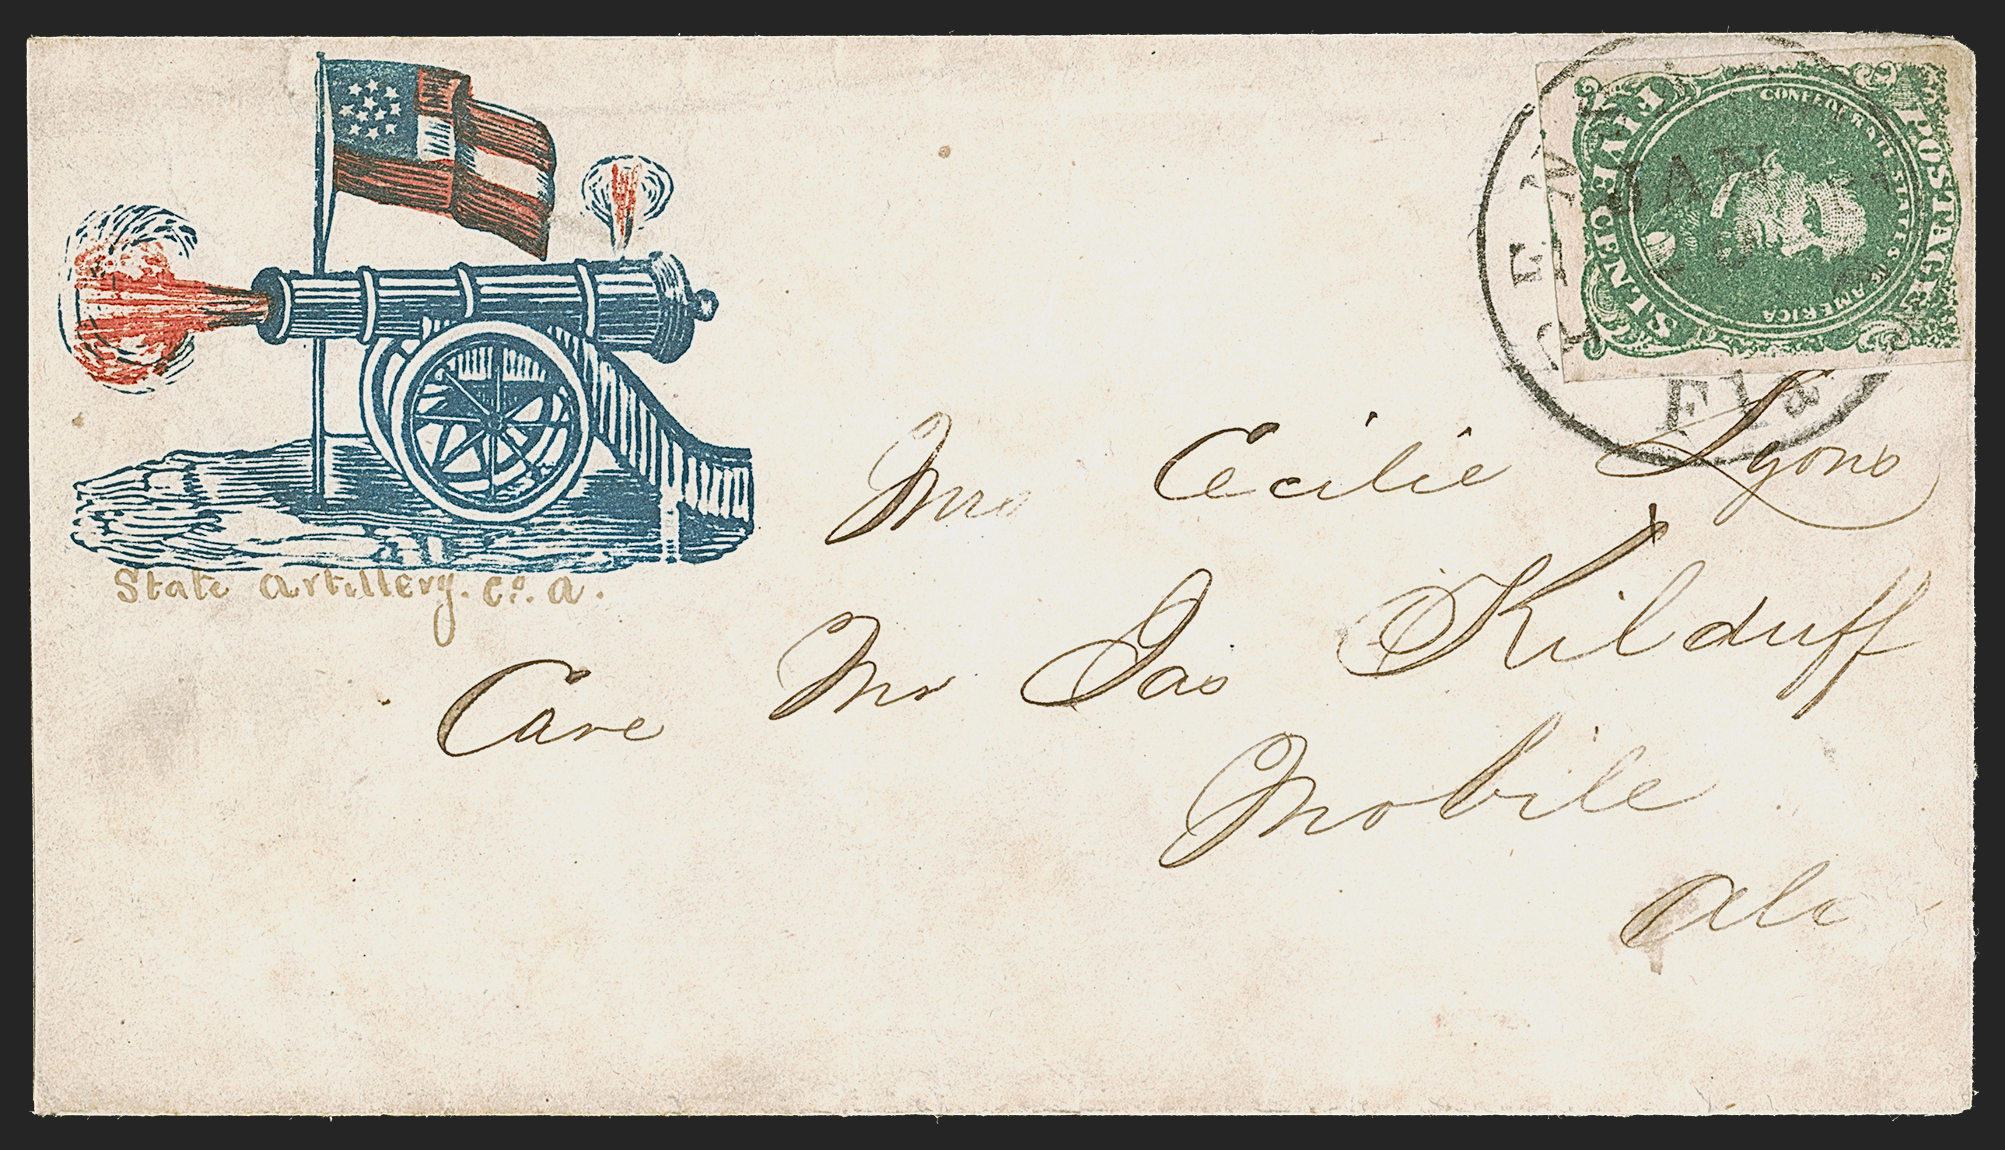 State Artillery. Co. A.
FIVE CENTS
CONFEDERATE STATES
AMERICA
POSTAGE
JAN
Mrs Cecilie Lyons
Care Mr Jas Kilduff
Mobile
Ala